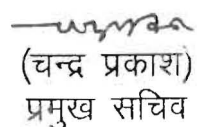 (चन्द्र प्रकाश)
प्रमुख सचिव